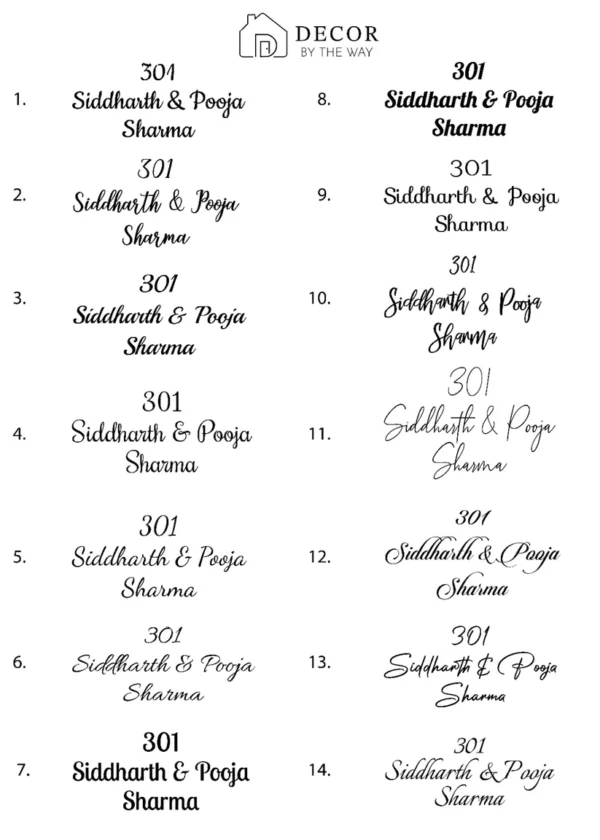 DECOR
BY THE WAY
1.
301
Siddharth & Pooja
Sharma
2.
301
Siddharth & Pooja
Sharma
3.
301
Siddharth & Pooja
Sharma
4.
301
Siddharth & Pooja
Sharma
5.
301
Siddharth & Pooja
Sharma
6.
301
Siddharth & Pooja
Sharma
7.
301
Siddharth & Pooja
Sharma
8.
301
Siddharth & Pooja
Sharma
9.
301
Siddharth & Pooja
Sharma
10.
301
Siddharth & Pooja
Sharma
11.
301
Siddharth & Pooja
Sharma
12.
301
Siddharth & Pooja
Sharma
13.
301
Siddharth & Pooja
Sharma
14.
301
Siddharth & Pooja
Sharma